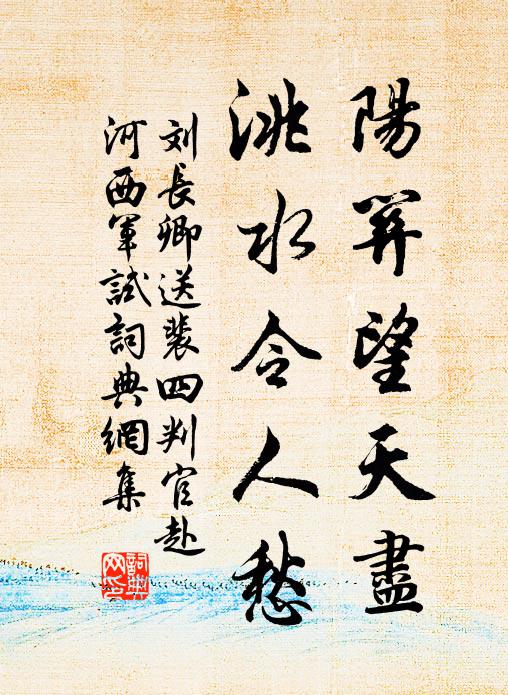 陽關望天盡
洮水令人愁
刘長卿送裴四判官赴
河西軍試詞典網集